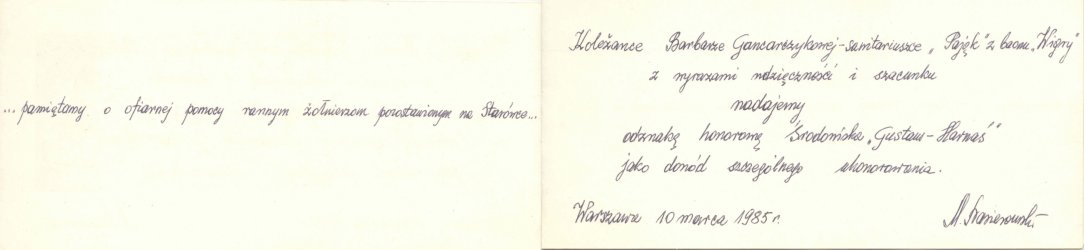 ... pamiętamy o ofiarnej pomocy rannym żołnierzom pozostawionym na Starówce...
Koleżance Barbarze Gancarczykowej-sanitariuszce „Pająk" z baonu „Wigry"
z wyrazami wdzięczności i szacunku
nadajemy
odznakę honorową Środowiska „Gustaw-Harnaś"
jako dowód szczególnego uhonorowania.
Warszawa 10 marca 1985 r. M.